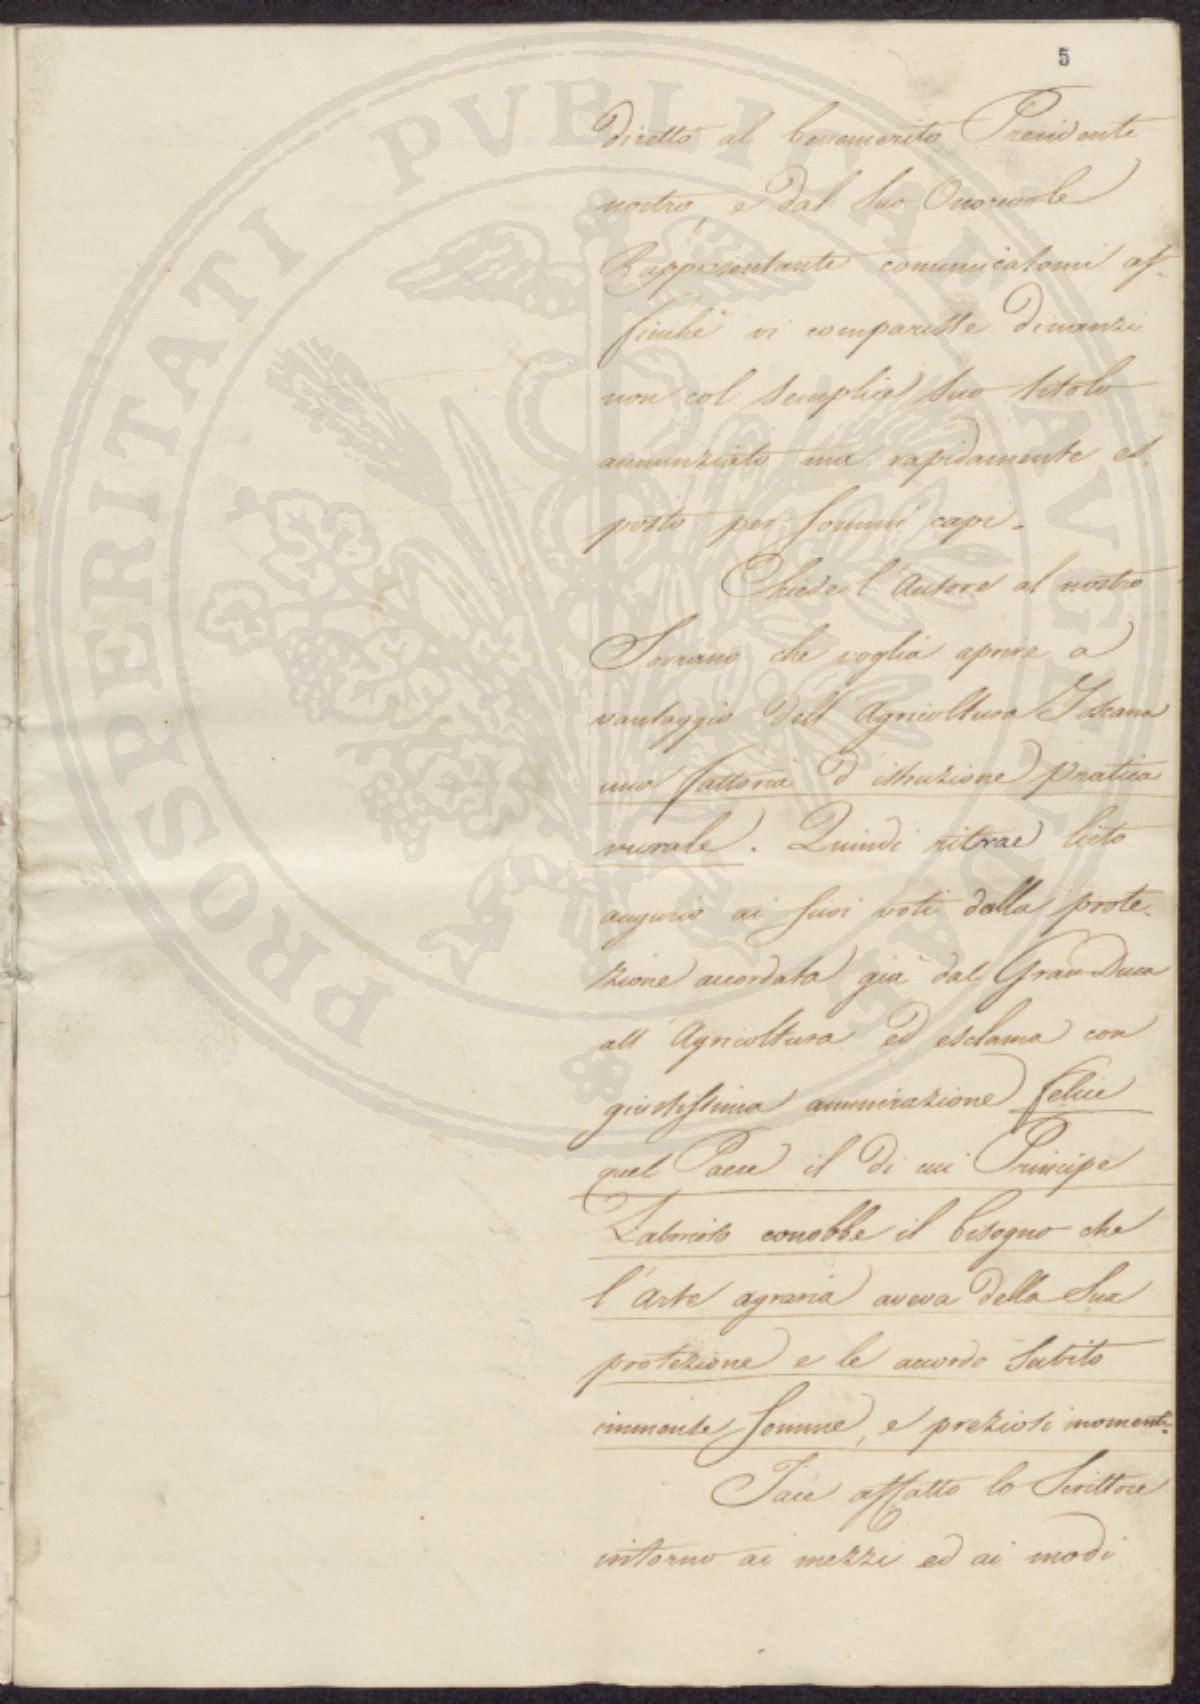 5
diretto al benemerito Presidente
nostro, e dal Suo Onorevole
Rappresentante comunicatomi af-
finchè vi comparisse dinanzi
non col semplice suo titolo
annunziato ma rapidamente es-
posto per sommi capi.
Chiede l'Autore al nostro
Sovrano che voglia aprire a
vantaggio dell'Agricoltura Toscana
una fattoria d'istruzione pratica
rurale. Quindi ritrae lieto
augurio ai suoi voti dalla prote-
zione accordata già dal Gran Duca
all'Agricoltura ed esclama con
giustissima ammirazione felice
quel Paese il di cui Principe
Laborioso conobbe il bisogno che
l'Arte agraria aveva della Sua
protezione e le accordò subito
immense somme, e preziosi momenti.
Tace affatto lo Scrittore
intorno ai mezzi ed ai modi
PROSPERITATI PUBLICAE AUGENDAE